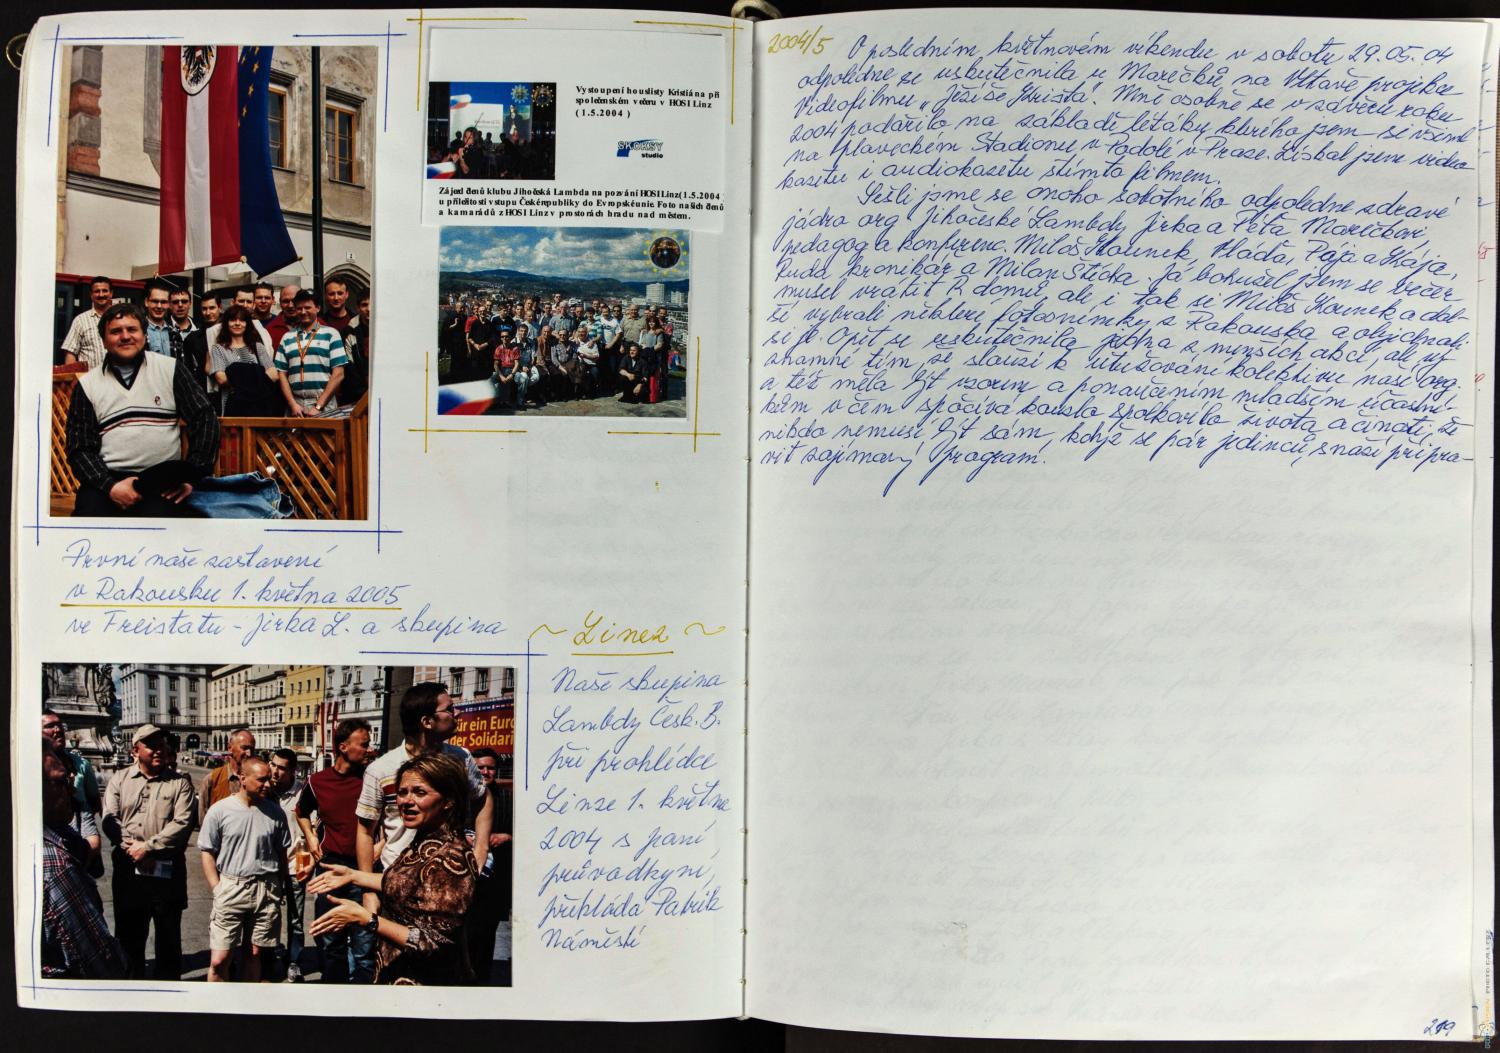 Vystoupení houslisty Kristiána při
společenském večeru v HOSI Linz
(1.5.2004 )
studio
Zájezd členů klubu Jihočeská Lambda na pozvání HOSI Linz(1.5.2004
u příležitosti vstupu České republiky do Evropské unie. Foto našich členů
a kamarádů z HOSI Linz v prostorách hradu nad městem.
První naše zastavení
v Rakousku 1. května 2005
ve Freistatu - Jirka L. a skupina
~ Linez ~
für ein Euro
der Solidari
Naše skupina
Lambdy Česk. B.
při prohlídce
Linze 1. května
2004 s paní
průvodkyní,
překládá Patrik
Náměstí
2004/5
O posledním květnovém víkendu v sobotu 29.05.04
odpoledne se uskutečnila u Marečků na Vltavě projekce
videofilmu „Ježíše Krista". Mně osobně se v závěru roku
2004 podařilo na základě letáku, kterého jsem si všiml
na plaveckém Stadionu v Podolí v Praze. Získal jsem video
kazetu i audiokazetu s tímto filmem.
Sešli jsme se onoho sobotního odpoledne zdravé
jádro org. Jihočeské Lambdy Jirka a Péťa Marečkovi
pedagog a konferenc. Miloš Kounek, Vláďa, Pája a Kája,
Ruda kronikář a Milan Štícha. Já bohužel jsem se večer
musel vrátit k domů ale i tak si Miloš Kounek a dal-
ší vybrali některé fotosnímky z Rakouska a objednali
si je. Opět se uskutečnila jedna z menších akcí, ale vý
znamné tím, že slouží k utužování kolektivu naší org.
a též měla být vzorem a ponaučením mladším účastní-
kům v čem spočívá kouzlo spolkového života a činnosti, že
nikdo nemusí být sám, když se pár jedinců snaží připra-
vit zajímavý program.
219